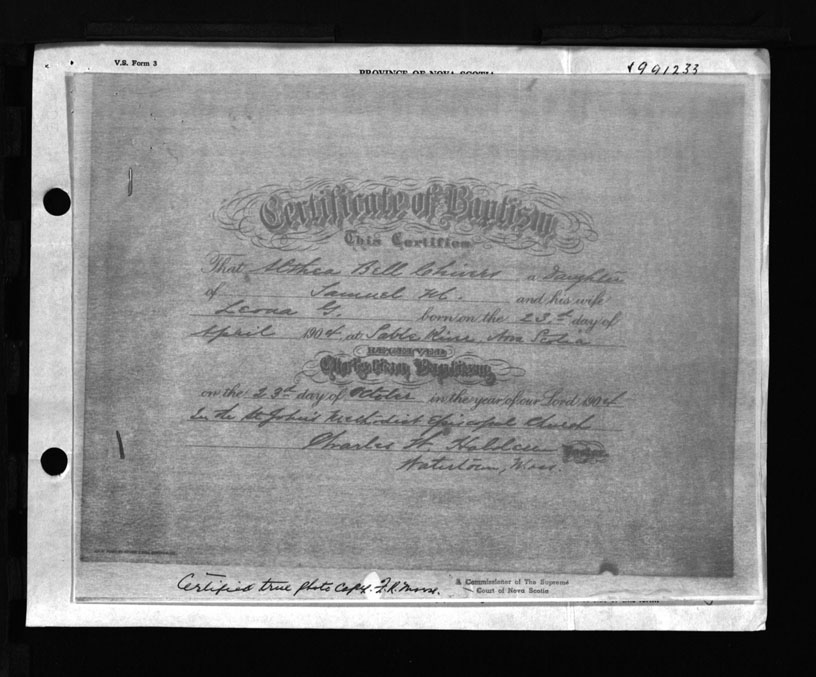 V.S. Form 3
PROVINCE OF NOVA SCOTIA
1991233
Certificate of Baptism
This Certifies
That Althea Bell Chivers a Daughter
of Samuel M. and his wife
Leona G. born on the 23rd day of
April 1904 at Sable River Nova Scotia
RECEIVED
Christian Baptism
on the 23rd day of October in the year of our Lord 1904
In the St John's Methodist Episcopal Church
Charles W. Holden Pastor
Watertown, Mass.
Certified true photo copy. F.R. Morse.
A Commissioner of The Supreme
Court of Nova Scotia